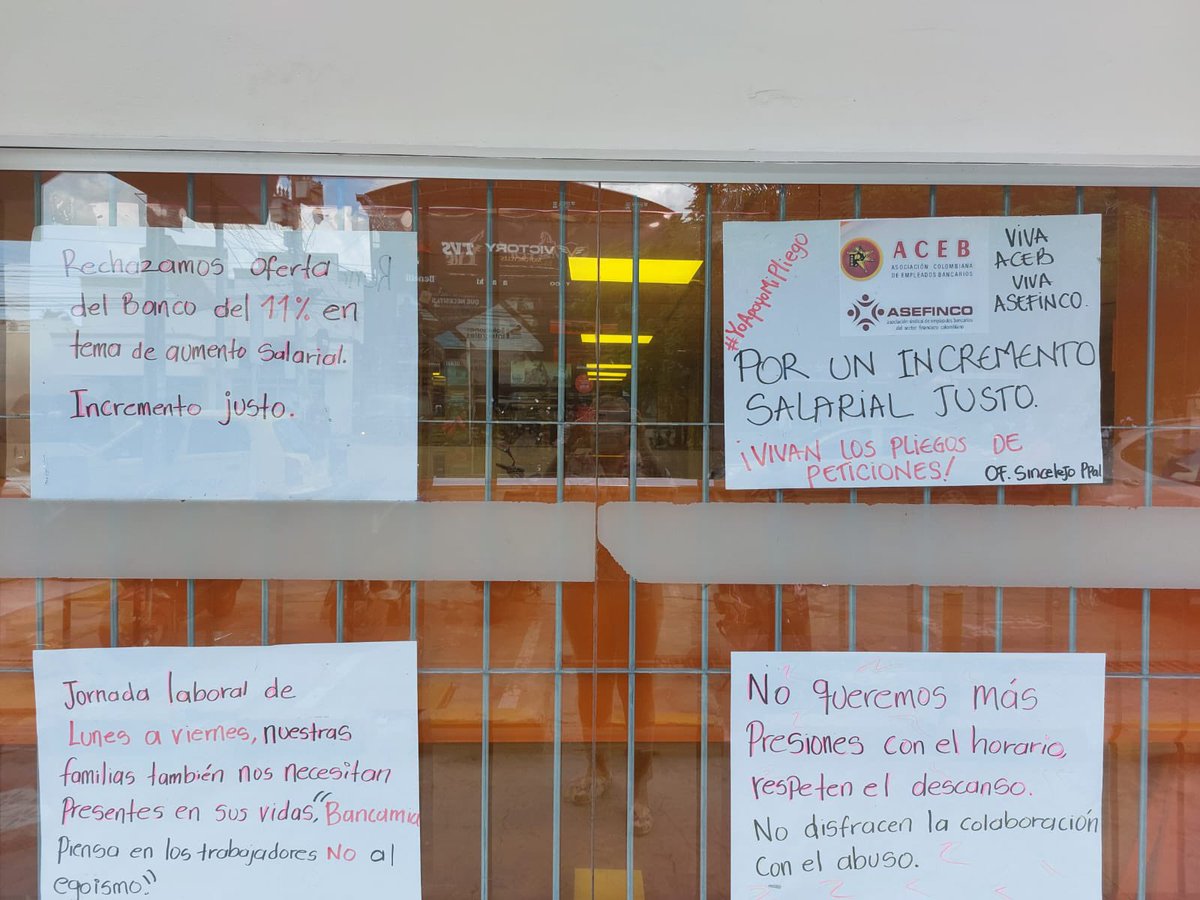 Rechazamos oferta
del Banco del 11% en
tema de aumento Salarial.
Incremento justo.
#YoApoyoMiPliego
ACEB
ASOCIACIÓN COLOMBIANA
DE EMPLEADOS BANCARIOS
ASEFINCO
asociación sindical de empleados bancarios
del sector financiero colombiano
VIVA
ACEB
VIVA
ASEFINCO.
POR UN INCREMENTO
SALARIAL JUSTO.
¡VIVAN LOS PLIEGOS DE
PETICIONES!
OF. Sincelejo PPal
VICTORY
TVS
Jornada laboral de
Lunes a viernes, nuestras
familias también nos necesitan
Presentes en sus vidas, "Bancamia
Piensa en los trabajadores NO al
egoismo."
No queremos más
Presiones con el horario,
respeten el descanso.
No disfracen la colaboración
con el abuso.